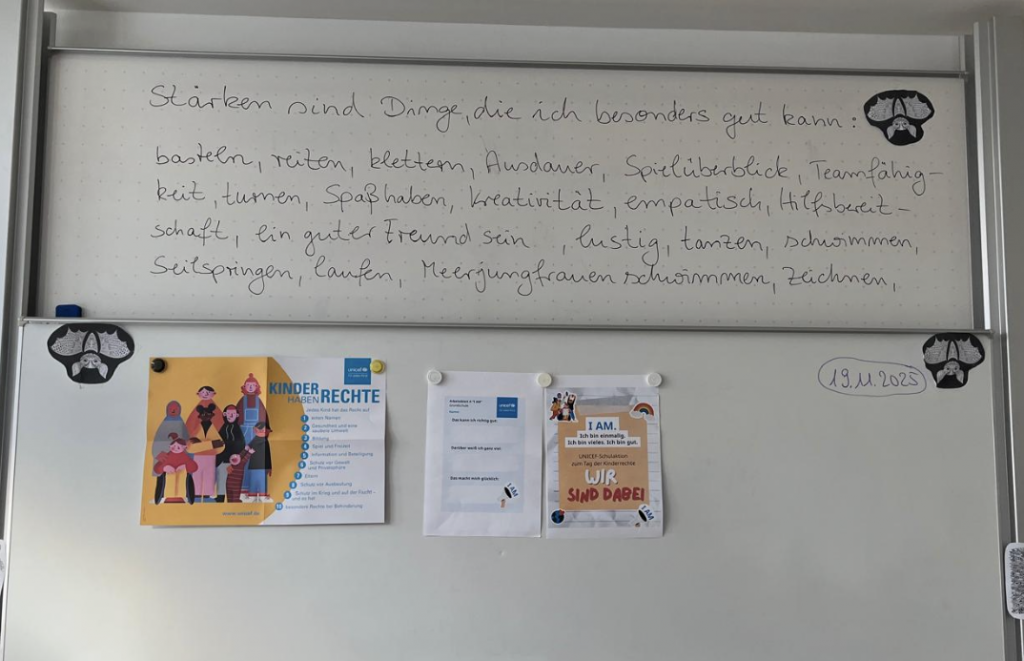 Stärken sind Dinge, die ich besonders gut kann:
basteln, reiten, klettern, Ausdauer, Spielüberblick, Teamfähig-
keit, turnen, Spaß haben, Kreativität, empatisch, Hilfsbereit-
schaft, ein guter Freund sein , lustig, tanzen, schwimmen,
Seilspringen, laufen, Meerjungfrauen schwimmen, zeichnen,
19.11.2025
unicef
KINDER
HABEN RECHTE
Jedes Kind hat das Recht auf
1 einen Namen
2 Gesundheit und eine
saubere Umwelt
3 Bildung
4 Spiel und Freizeit
5 Information und Beteiligung
6 Schutz vor Gewalt
und Privatsphäre
7 Eltern
8 Schutz vor Ausbeutung
9 Schutz im Krieg und auf der Flucht
10 besondere Rechte bei Behinderung
www.unicef.de
unicef
Das kann ich richtig gut:
Darüber weiß ich ganz viel:
Das macht mich glücklich:
I AM
I AM.
Ich bin einmalig.
Ich bin vieles. Ich bin gut.
UNICEF-Schulaktion
zum Tag der Kinderrechte
WIR
SIND DABEI
I AM